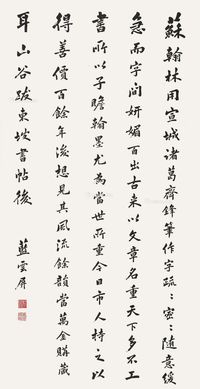 蘇翰林用宣城諸葛齊鋒筆作字疏〻密〻隨意緩
急而字間妍媚百出古来以文章名重天下多不工
書所以子瞻翰墨尤為當世所重今日市人持之以
得善價百餘年後想見其風流餘韻當萬金購藏
耳山谷跋東坡書帖後
藍雲屏